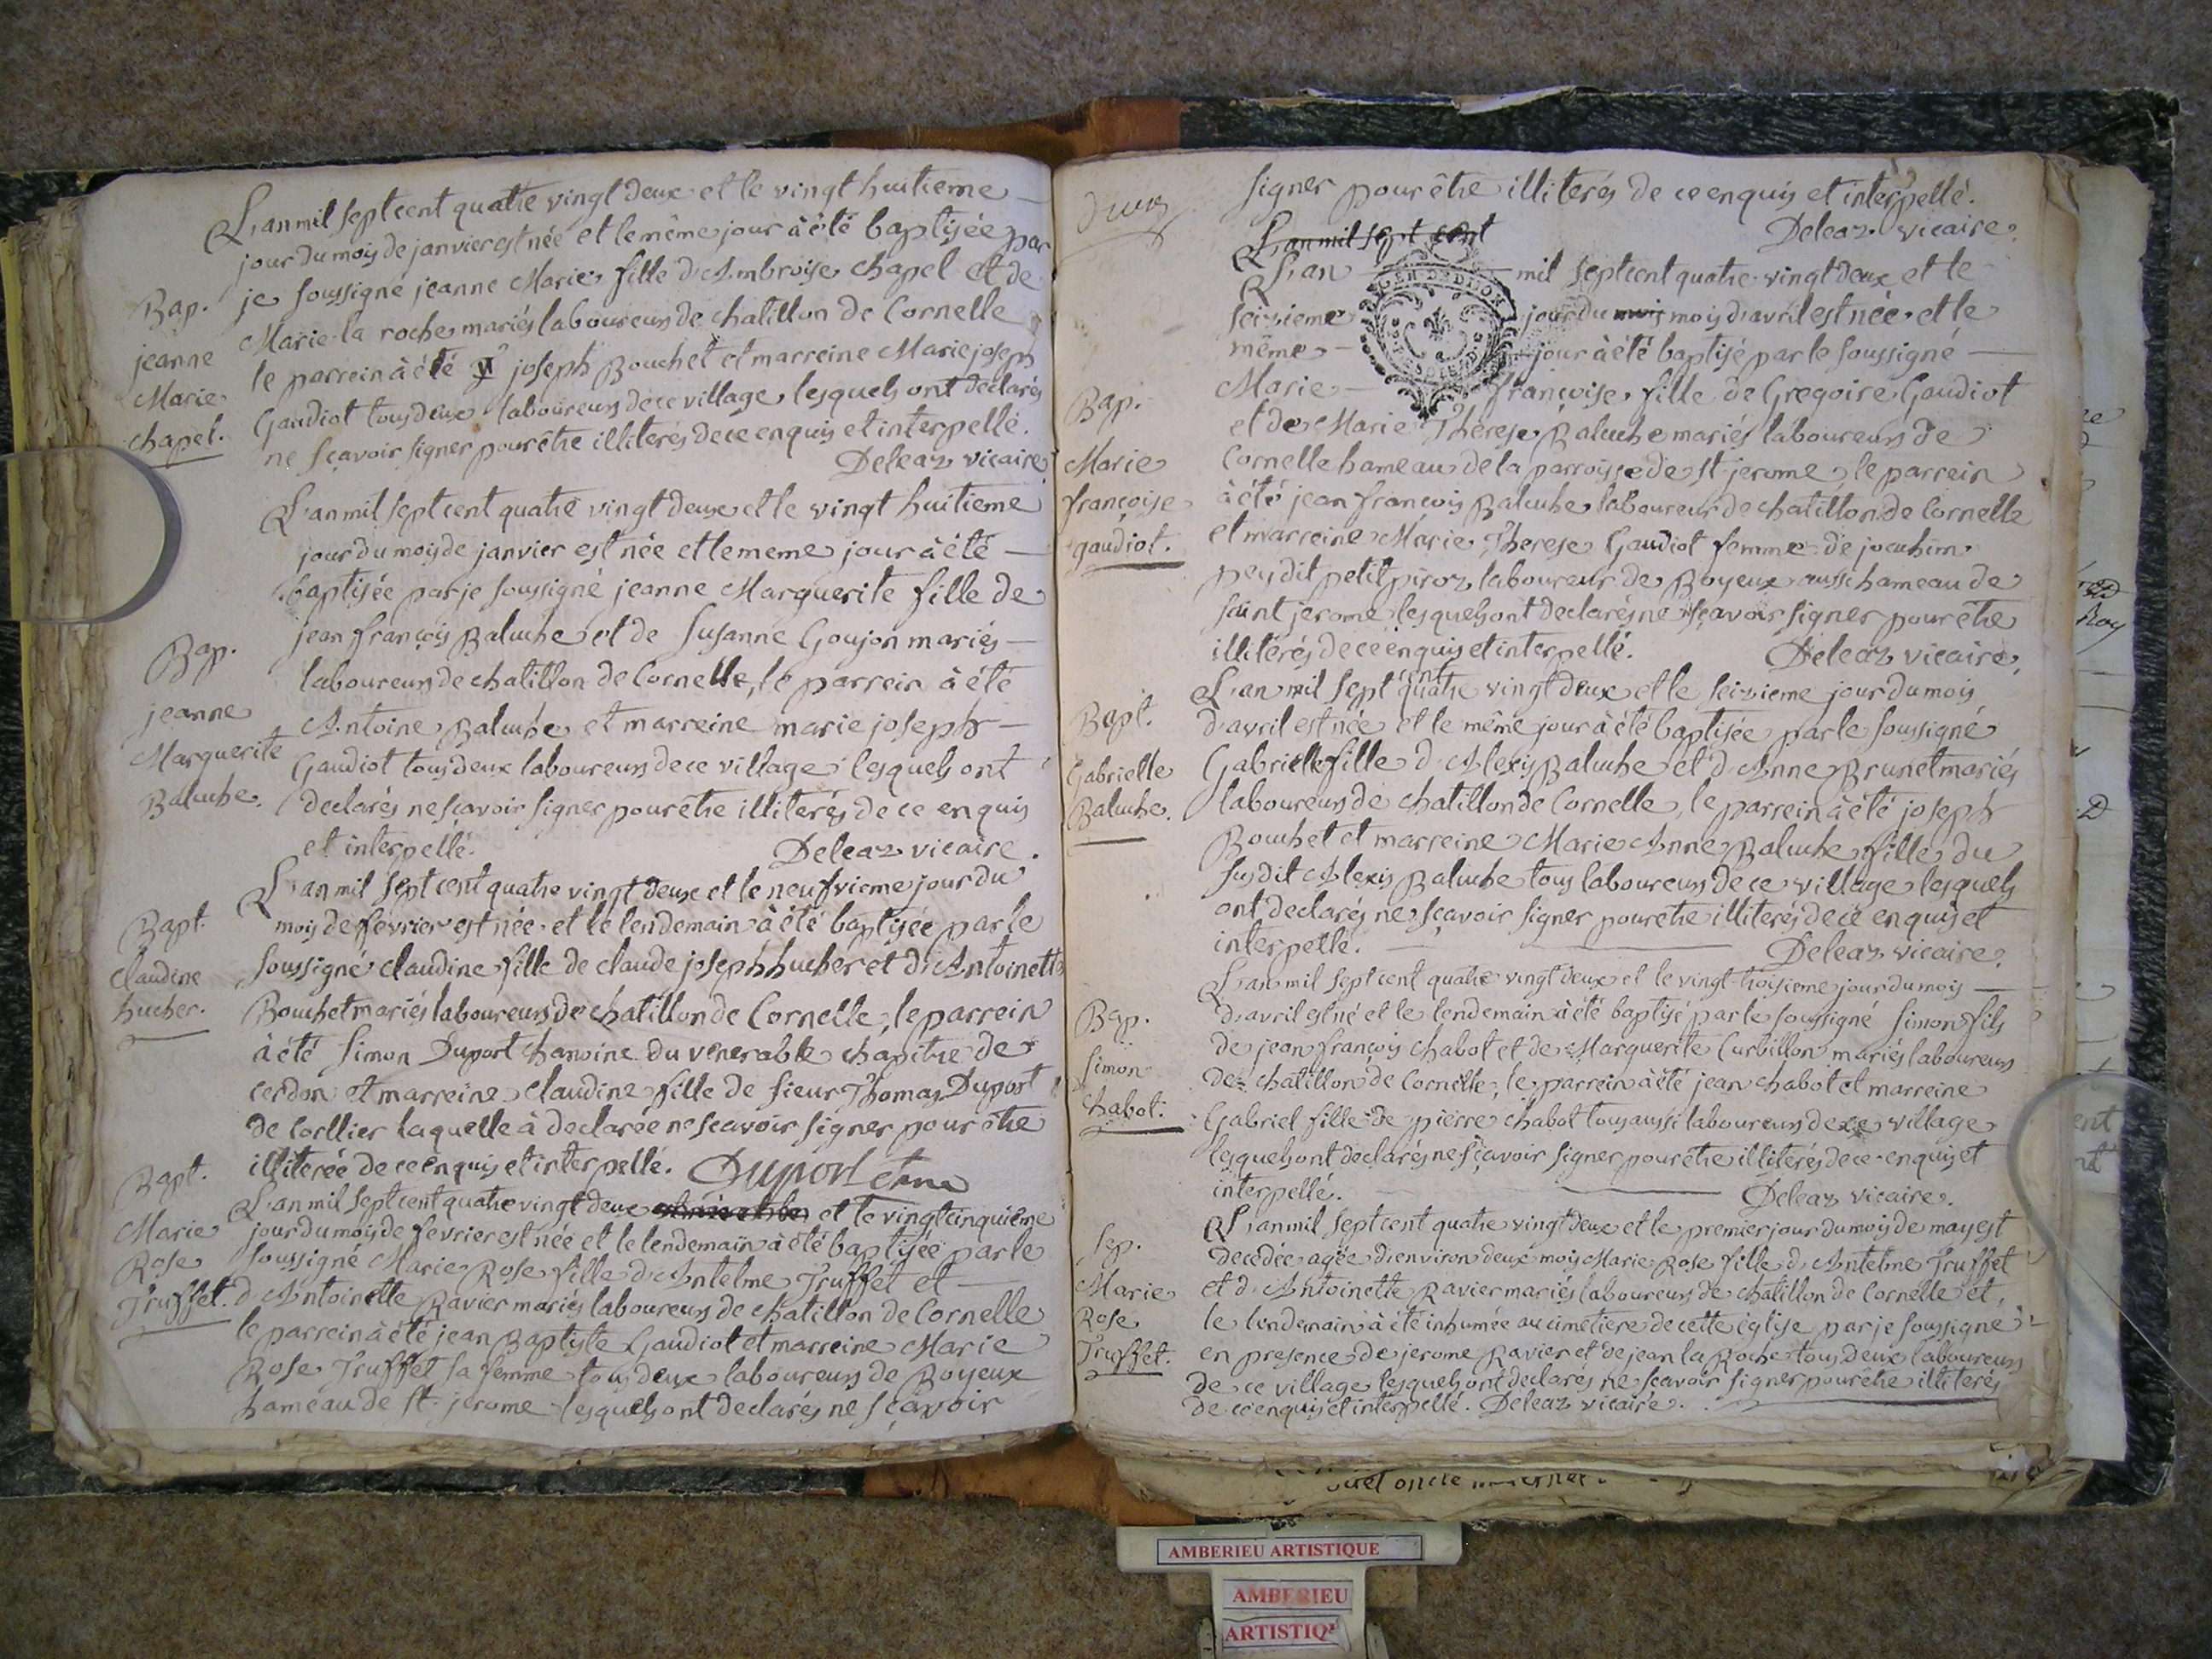 L'an mil sept cent quatre vingt deux et le vingt huitieme
jour du mois de janvier est née et le même jour à été baptisée par
je soussigné jeanne Marie fille d'Ambroise chapel et de
Marie la roche mariés laboureurs de chatillon de Cornelle
le parrein à été joseph Bouchet et marreine Marie joseph
Gaudiot tous deux laboureurs de ce village lesquels ont declarés
ne sçavoir signer pour être illiterés de ce enquis et interpellé.
Deleaz vicaire
Bap.
jeanne
Marie
chapel.
L'an mil sept cent quatre vingt deux et le vingt huitieme
jour du mois de janvier est née et le meme jour à été
baptisée par je soussigné jeanne Marguerite fille de
jean françois Baluche et de Susanne Goujon mariés
laboureurs de chatillon de Cornelle, le parrein à été
Antoine Baluche et marreine marie joseph
Gaudiot tous deux laboureurs de ce village lesquels ont
declarés ne sçavoir signer pour être illiterés de ce enquis
et interpellé. Deleaz vicaire.
Bap.
jeanne
Marguerite
Baluche.
L'an mil sept cent quatre vingt deux et le neufvieme jour du
mois de fevrier est née et le lendemain à été baptisée par le
soussigné claudine fille de claude joseph hucher et d'Antoinette
Bouchet mariés laboureurs de chatillon de Cornelle, le parrein
à été simon Duport chanoine du venerable chapitre de
cerdon et marreine claudine fille de sieur Thomas Duport
de Corllier laquelle à declarée ne scavoir signer pour être
illiterée de ce enquis et interpellé. Duport
Bapt.
Claudine
hucher.
L'an mil sept cent quatre vingt deux et le vingt cinquième
jour du mois de fevrier est née et le lendemain à été baptisée par le
soussigné Marie Rose fille d'Antelme Truffet et
d'Antoinette Ravier mariés laboureurs de chatillon de Cornelle
le parrein à été jean Baptiste Gaudiot et marreine Marie
Rose Truffet sa femme tous deux laboureurs de Boyeux
hameau de st. jerome lesquels ont declarés ne sçavoir
Bapt.
Marie
Rose
Truffet.
signer pour être illiterés de ce enquis et interpellé.
Deleaz vicaire.
L'an mil sept cent
L'an mil sept cent quatre vingt deux et le
seizieme jour du mois mois d'avril est née et le
même jour à été baptisé par le soussigné
Marie françoise fille de Gregoire Gaudiot
et de Marie Thérese Baluche mariés laboureurs de
Cornelle hameau de la parroisse de st jerome, le parrein
à été jean françois Baluche laboureur de chatillon de Cornelle
et marreine Marie Therese Gaudiot femme de joachim
pey dit petit piroz laboureur de Boyeux aussi hameau de
saint jerome lesquels ont declarés ne sçavoir signer pour être
illitérés de ce enquis et interpellé. Deleaz vicaire.
Bap.
Marie
françoise
gaudiot.
L'an mil sept cent quatre vingt deux et le seizieme jour du mois
d'avril est née et le même jour à été baptisée par le soussigné
Gabrielle fille d'Alexis Baluche et d'Anne Brunet mariés
laboureurs de chatillon de Cornelle, le parrein à été joseph
Bouchet et marreine Marie Anne Baluche fille du
susdit Alexis Baluche tous laboureurs de ce village lesquels
ont declarés ne sçavoir signer pour être illiterés de ce enquis et
interpellé. Deleaz vicaire.
Bapt.
Gabrielle
Baluche.
L'an mil sept cent quatre vingt deux et le vingt troisieme jour du mois
d'avril est né et le lendemain à été baptisé par le soussigné Simon fils
de jean françois chabot et de Marguerite Curbillon mariés laboureurs
de chatillon de Cornelle, le parrein à été jean chabot et marreine
Gabriel fille de pierre chabot tous aussi laboureurs de ce village
lesquels ont declarés ne sçavoir signer pour être illiterés de ce enquis et
interpellé. Deleaz vicaire.
Bap.
Simon
Chabot.
L'an mil sept cent quatre vingt deux et le premier jour du mois de may est
decedée agée d'environ deux mois Marie Rose fille d'Antelme Truffet
et d'Antoinette Ravier mariés laboureurs de chatillon de Cornelle et
le lendemain à été inhumée au cimetiere de cette église par je soussigné
en presence de jerome Ravier et de jean la Roche tous deux laboureurs
de ce village lesquels ont declarés ne scavoir signer pour être illiterés
de ce enquis et interpellé. Deleaz vicaire.
Sep.
Marie
Rose
Truffet.
AMBERIEU ARTISTIQUE
AMBERIEU
ARTISTIQ